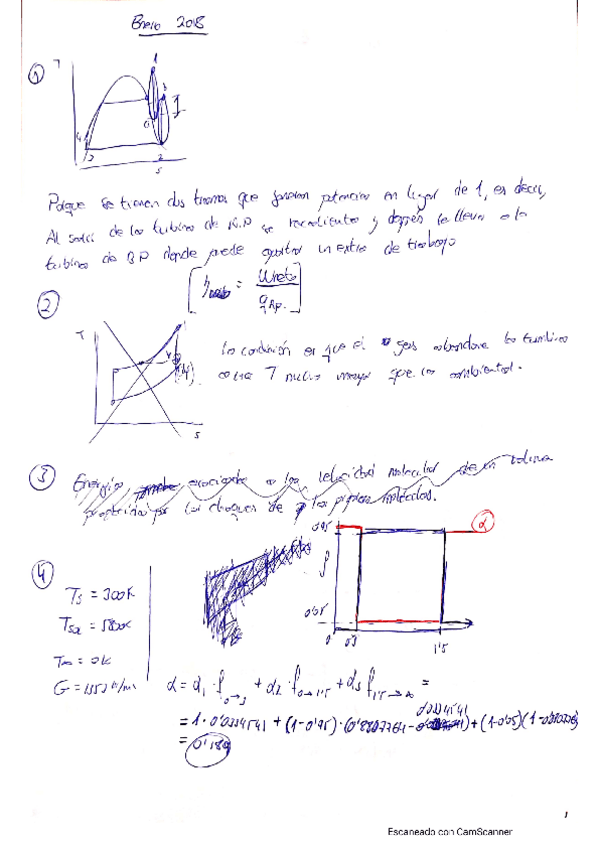 Enero 2018
1
T
1
3
4
2
s
Porque se tienen dos tramos que generan potencia en lugar de 1, es decir,
Al salir de la turbina de A.P se recalienta y después se lleva a la
turbina de B.P donde puede aportar un extra de trabajo
= Wneto / q Ap.
2
T
s
La condición es que el gas abandone la turbina
con una T mucho mayor que la ambiental.
3
Energía asociada a la velocidad molecular de un sistema
por los choques de las propias moléculas.
4
0'95
α
ρ
0'05
0
0'3
1'5
Ts = 300K
Tsol = 5800K
T∞ = 0K
G = 1353 W/m²
α = α1 · f0→3 + α2 · f0→1'5 + α3 f1'5→∞ =
= 1 · 0'0334541 + (1-0'95) · (0'8807764 - 0'0334541) + (1-0'05)(1-
= 0'189
1
Escaneado con CamScanner